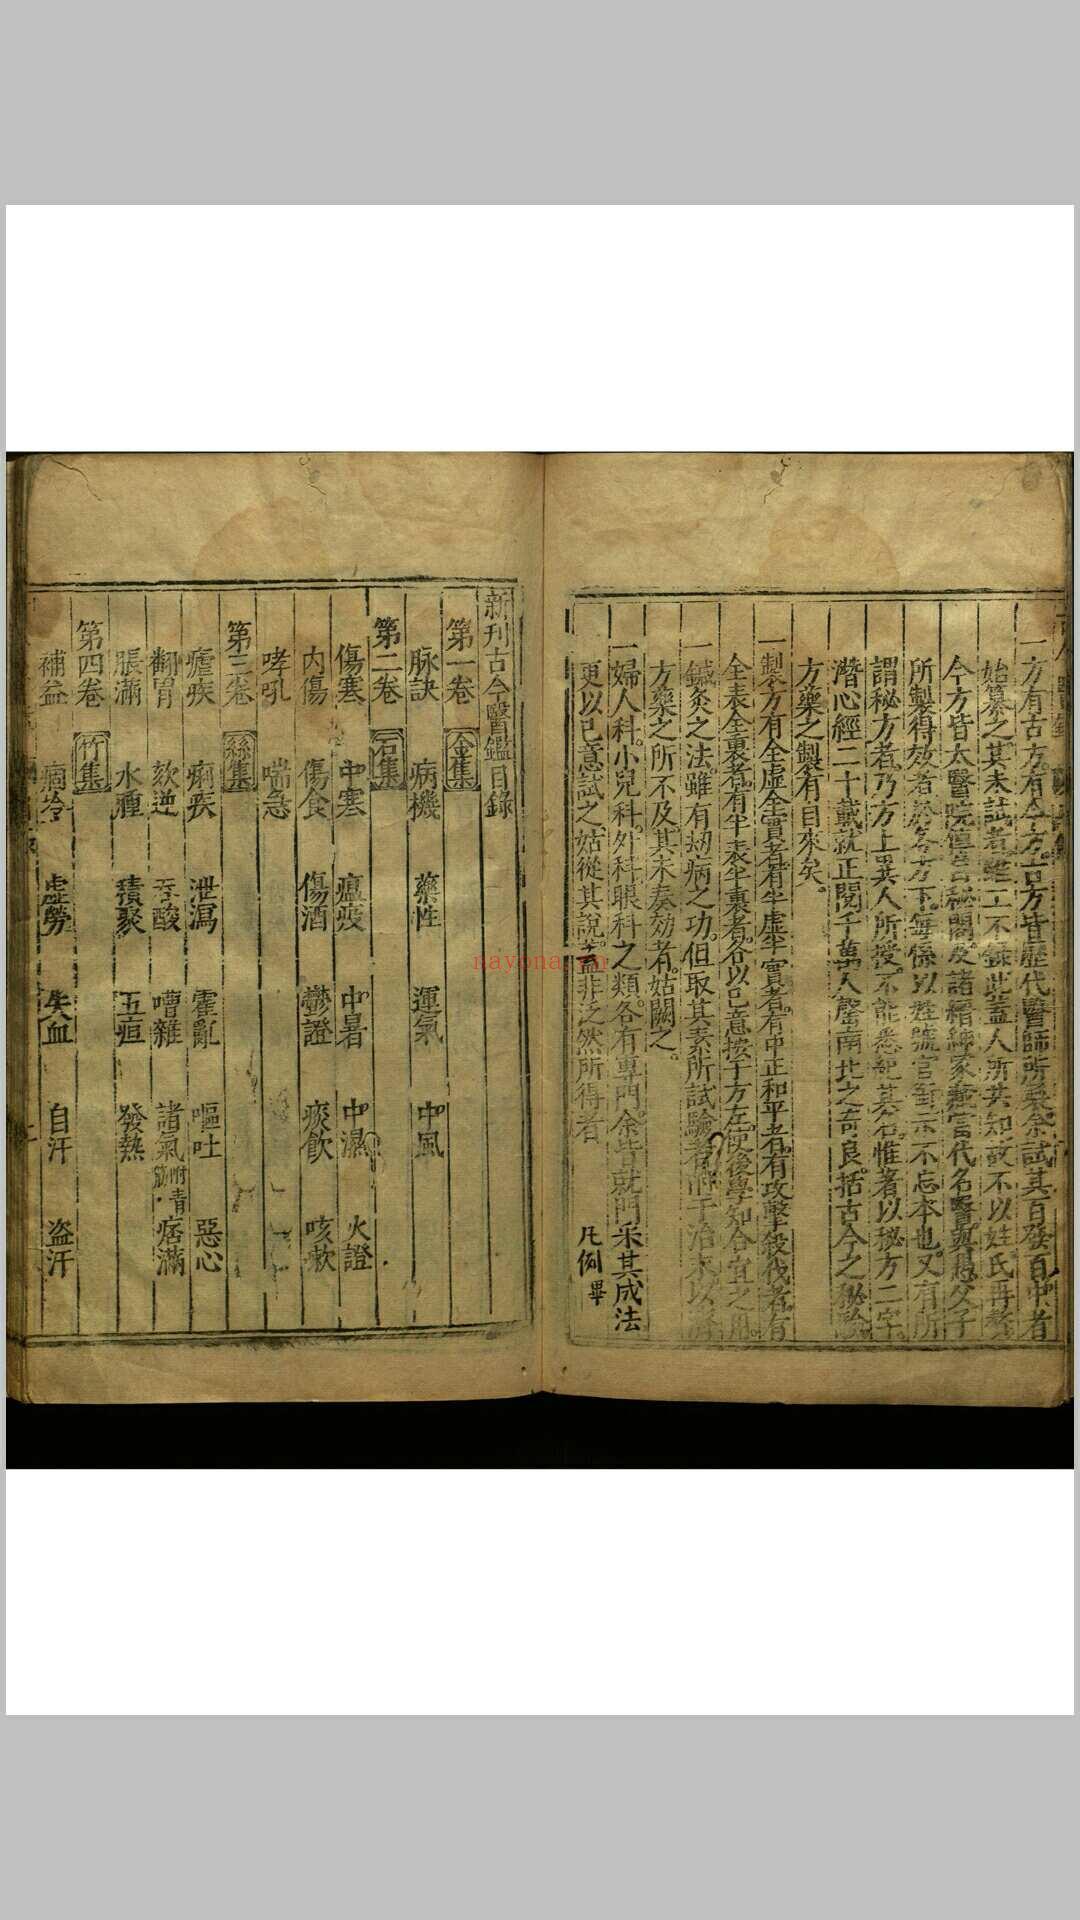 一方有古方有今方古方皆歷代醫師所集余試其百發百中者
始纂之其未試者雖工不錄此蓋人所共知故不以姓氏再贅
今方皆太醫院傳言秘閣及諸縉紳家藏當代名醫與愚父子
所製得效者於各方下每係以姓號官銜示不忘本也又有所
謂秘方者乃方上異人所授不能悉紀其名惟著以秘方二字
潛心經二十載就正閱千萬人罄南北之奇良括古今之秘驗
方藥之製有自來矣
一製方有全虛全實者有半虛半實者有中正和平者有攻擊殺伐者有
全表全裏者有半表半裏者各以己意按于方左使後學知合宜之用
一鍼灸之法雖有劫病之功但取其素所試驗者附于治末以濟
方藥之所不及其未奏効者姑闕之
一婦人科小兒科外科眼科之類各有專門余皆就門采其成法
更以己意試之姑從其說蓋非泛然所得者
凡例畢
新刊古今醫鑑目錄
第一卷 金集
脉訣 病機 藥性 運氣 中風
第二卷 石集
傷寒 中寒 瘟疫 中暑 中濕 火證
內傷 傷食 傷酒 鬱證 痰飲 咳嗽
哮吼 喘急
第三卷 絲集
瘧疾 痢疾 泄瀉 霍亂 嘔吐 惡心
翻胃 欬逆 吞酸 嘈雜 諸氣附青筋 痞滿
脹滿 水腫 積聚 五疸 發熱
第四卷 竹集
補益 痼冷 虛勞 失血 自汗 盗汗
nayona.cn